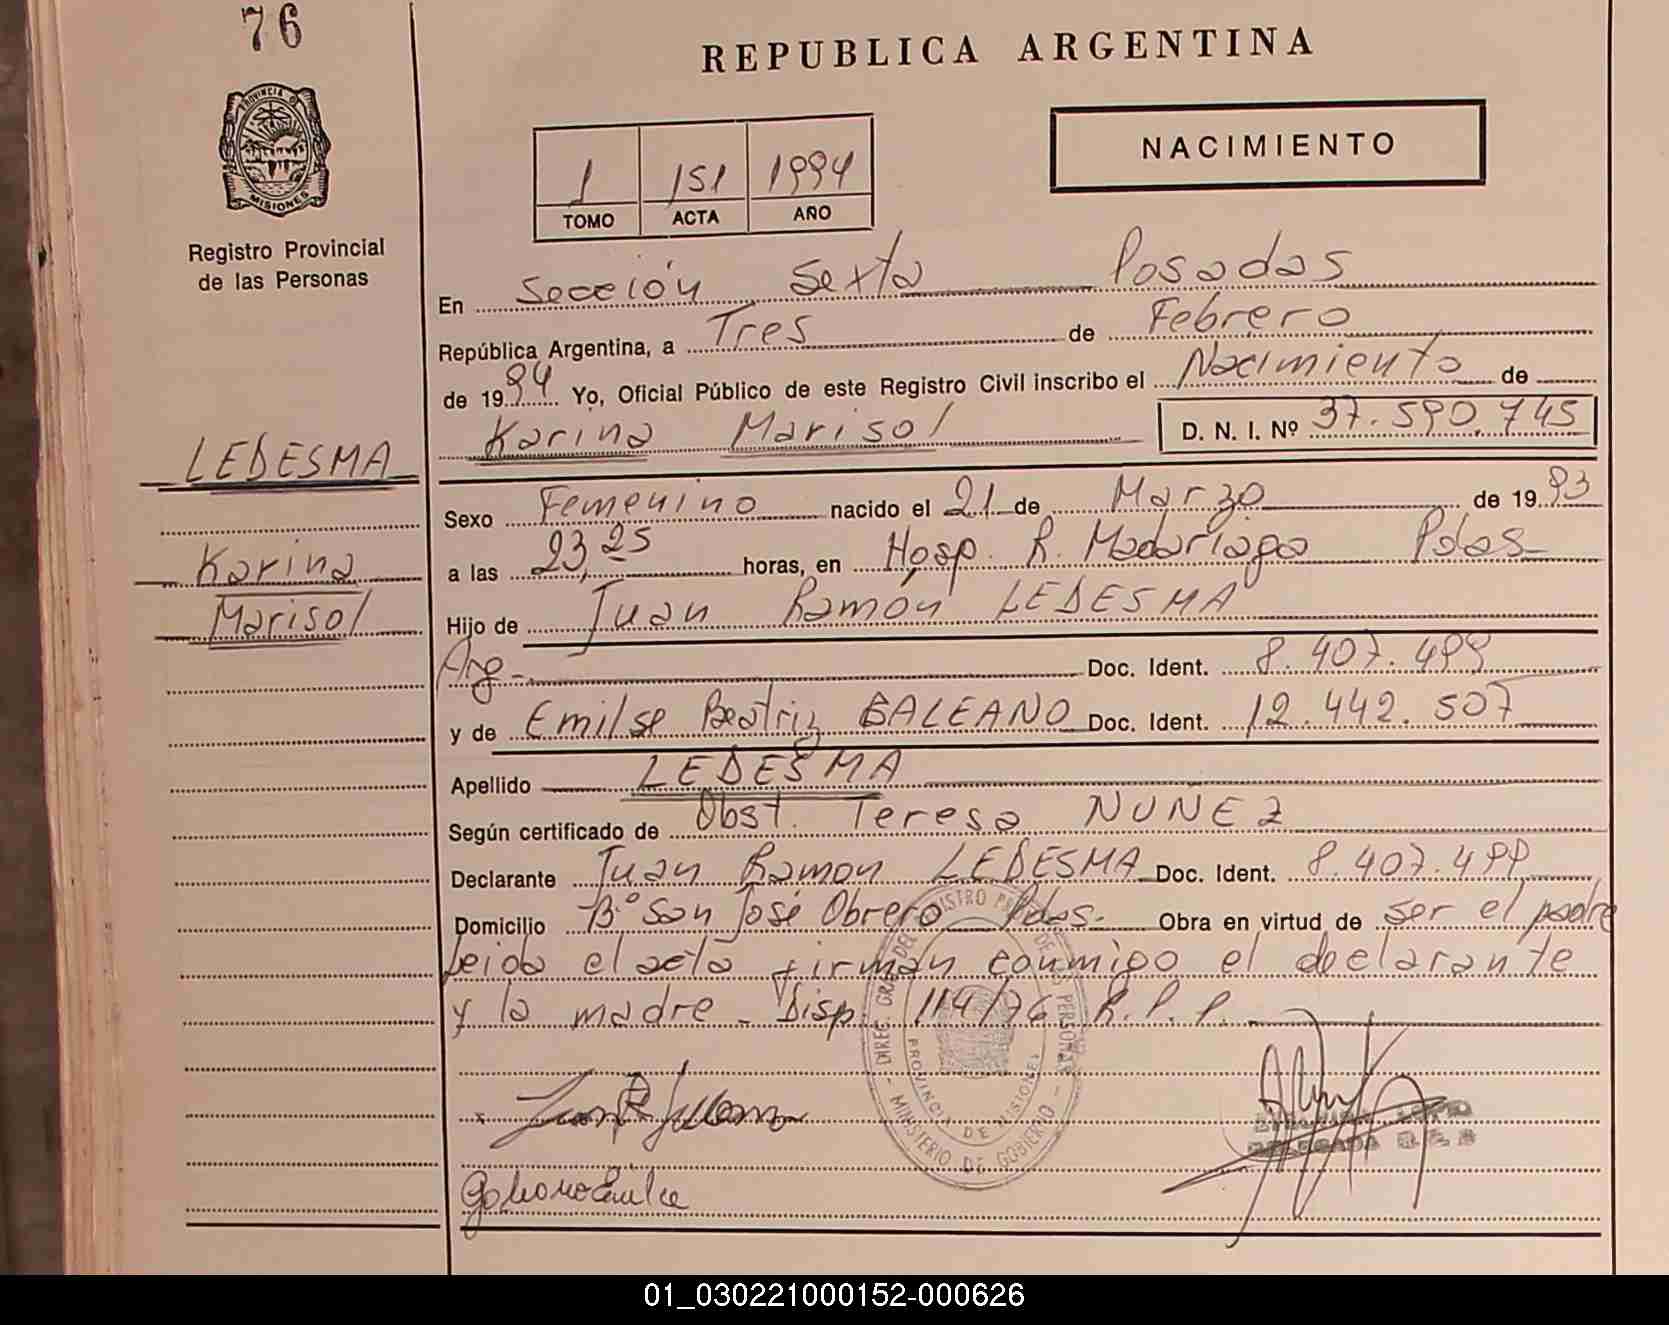 76
REPUBLICA ARGENTINA
PROVINCIA DE MISIONES
Registro Provincial
de las Personas
NACIMIENTO
1 151 1994
TOMO ACTA AÑO
En Sección Sexta Posadas
República Argentina, a Tres de Febrero
de 1994 Yo, Oficial Público de este Registro Civil inscribo el Nacimiento de
Karina Marisol D. N. I. Nº 37.590.745
LEDESMA
Karina
Marisol
Sexo Femenino nacido el 21 de Marzo de 1993
a las 23,25 horas, en Hosp. R. Madariaga Pdas
Hijo de Juan Ramón LEDESMA
Arg - Doc. Ident. 8.407.499
y de Emilse Beatriz BALEANO Doc. Ident. 12.442.507
Apellido LEDESMA
Según certificado de Obst. Teresa NUNEZ
Declarante Juan Ramon LEDESMA Doc. Ident. 8.407.499
Domicilio Bº San José Obrero Pdas- Obra en virtud de ser el padre
Leida el acta firman conmigo el declarante
y la madre - Disp. 114/76 R.P.P.
DIREC. GRAL. DEL REGISTRO PROV. DE LAS PERSONAS
PROVINCIA DE MISIONES
MINISTERIO DE GOBIERNO
DELEGADA
01_030221000152-000626